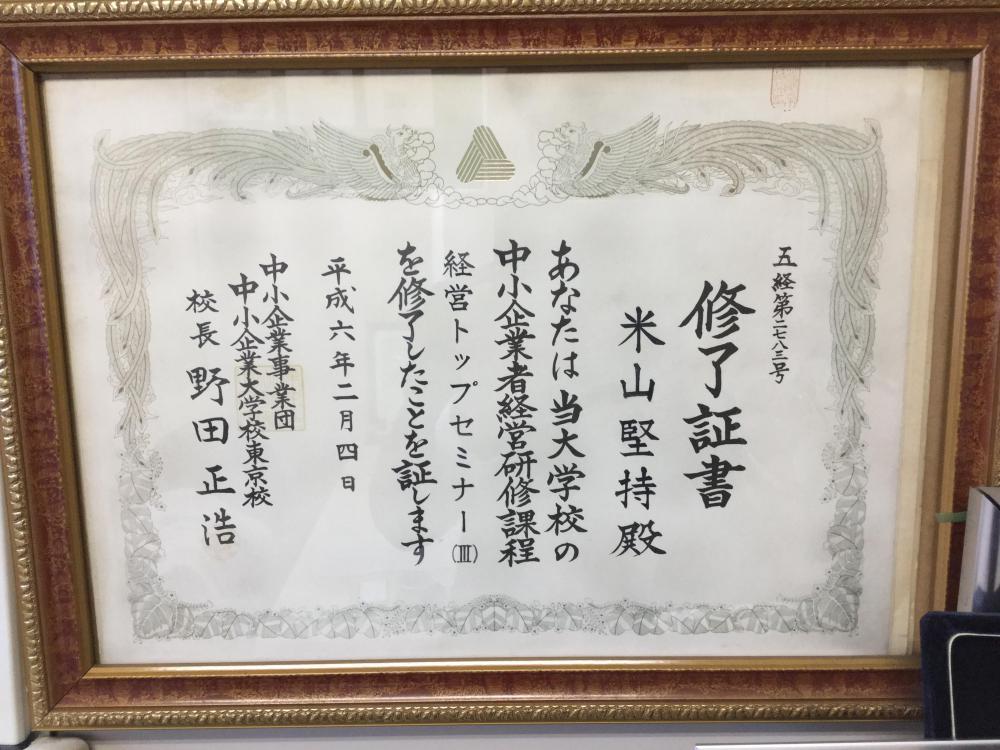 五経第二七八三号
修了証書
米山堅持殿
あなたは当大学校の
中小企業者経営研修課程
経営トップセミナー(Ⅲ)
を修了したことを証します
平成六年二月四日
中小企業事業団
中小企業大学校東京校
校長 野田正浩